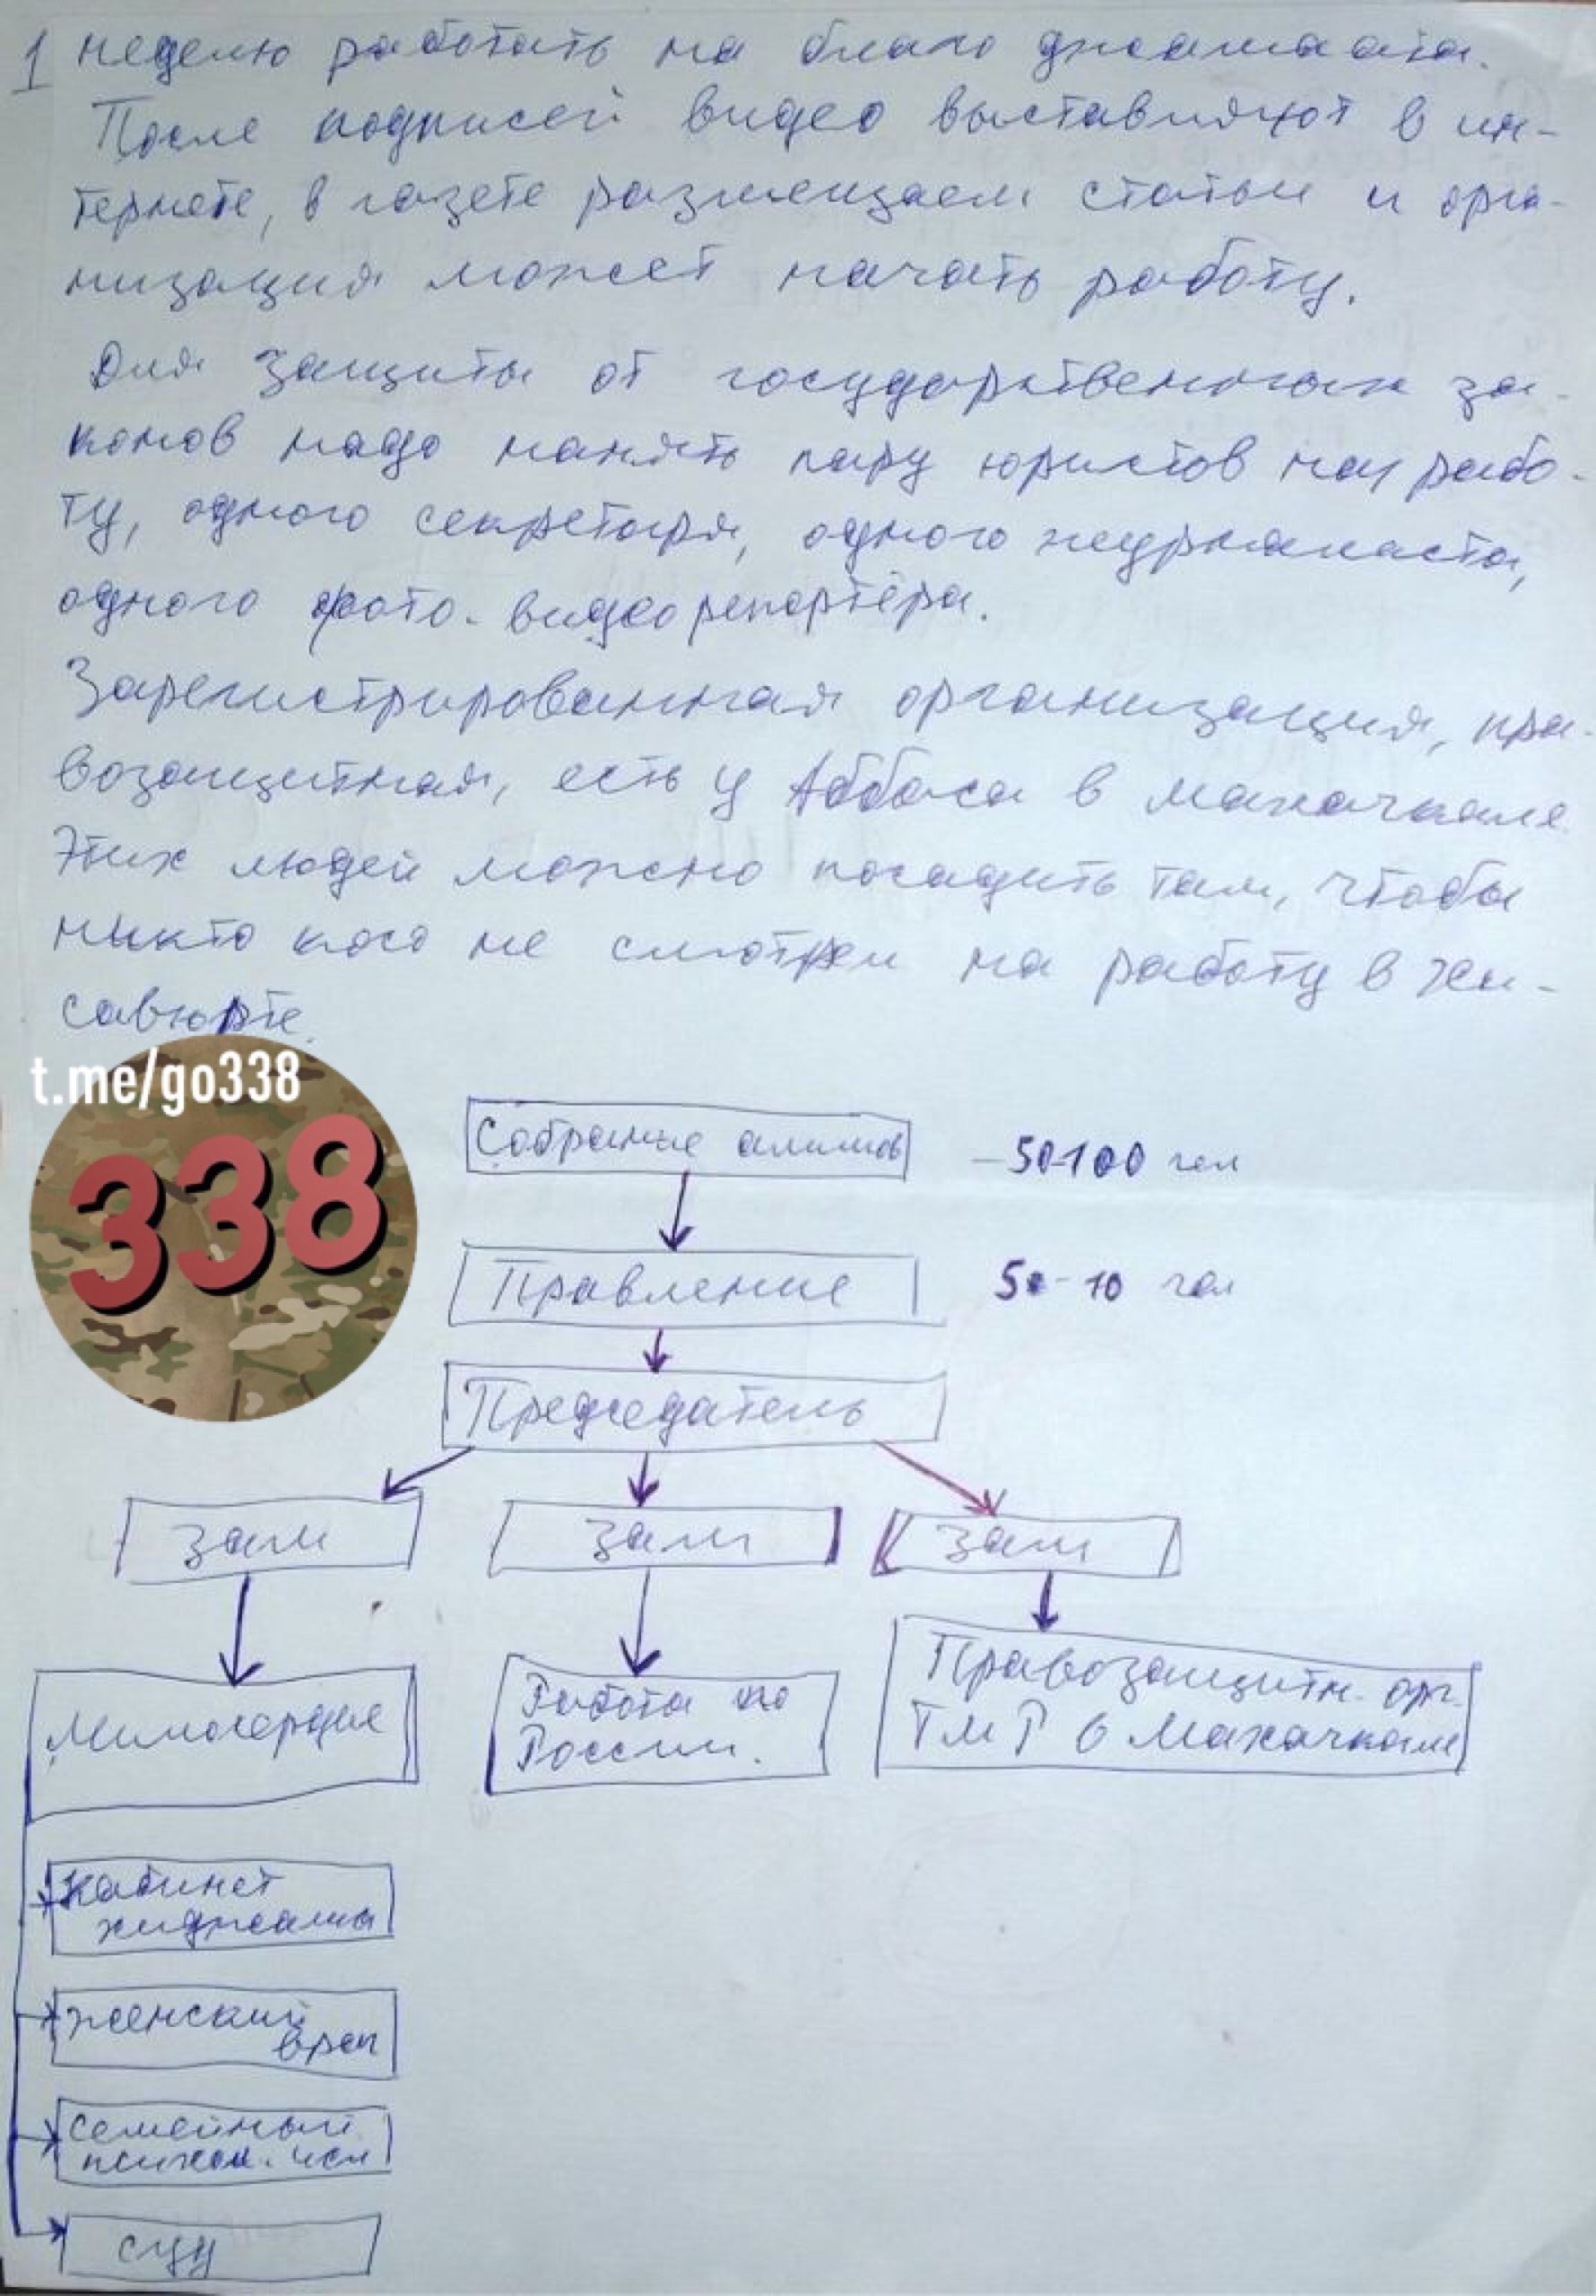 1 неделю работать на благо джамаата.
После подписей видео выставляют в ин-
тернете, в газете размещаем статьи и орга-
низация может начать работу.
Для защиты от государственных за-
конов надо нанять пару юристов на рабо-
ту, одного секретаря, одного журналиста,
одного фото-видеорепортёра.
Зарегистрированная организация, пра-
возащитная, есть у Аббаса в Махачкале.
Этих людей можно посадить там, чтобы
никто косо не смотрел на работу в Ха-
савюрте.
t.me/go338
338
Собрание алимов - 50-100 чел
Правление 5-10 чел
Председатель
Зам Зам Зам
Милосердие
Работа по
России.
Правозащитн. орг.
ТМР в Махачкале
Кабинет
хиджамы
Женский
врач
Семейный
психол.
Суд